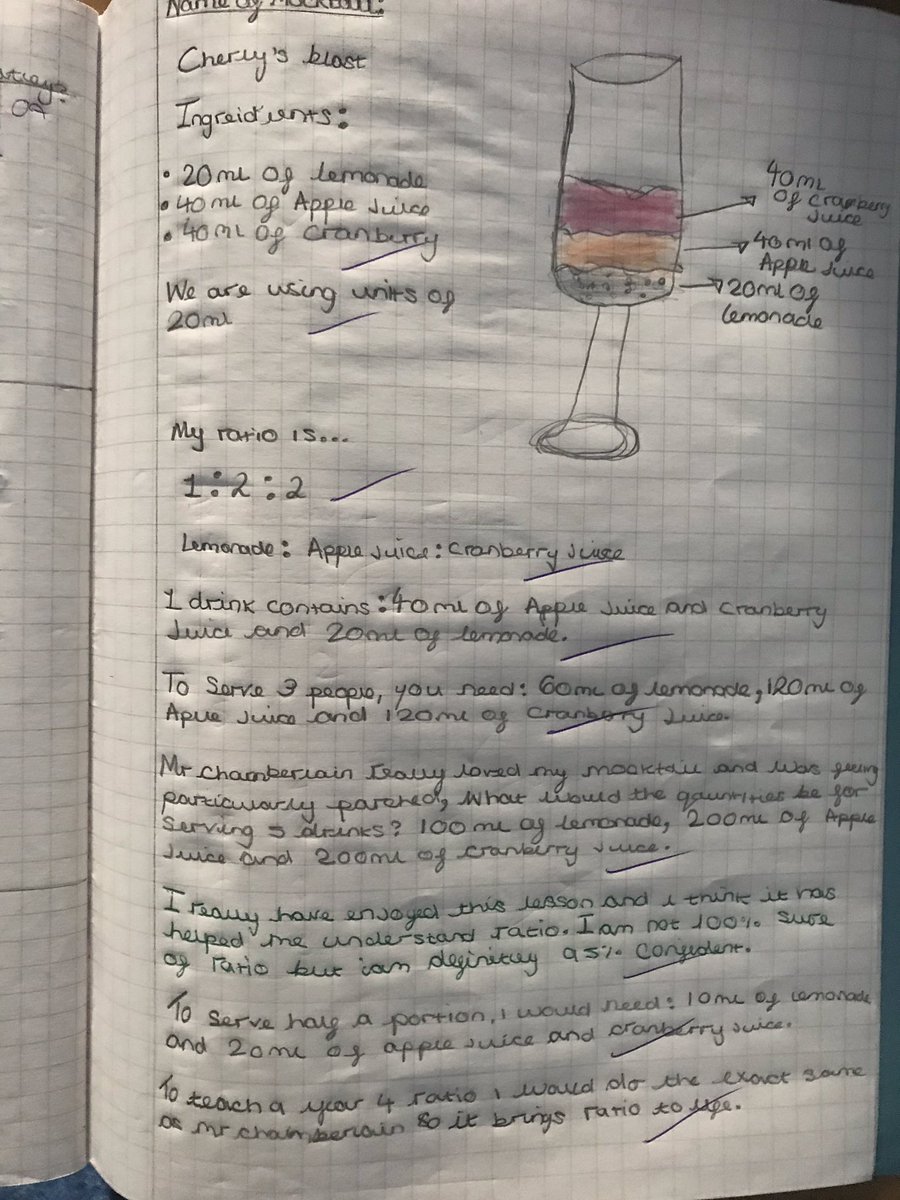 Name of Mocktail:
Cherly's blast
Ingreidients:
• 20ml of lemonade
• 40ml of Apple Juice
• 40ml of Cranberry
We are using units of
20ml
40ml
of cranberry
Juice
40ml of
Apple Juice
20ml of
lemonade
My ratio is...
1:2:2
Lemonade: Apple Juice: Cranberry Juice
1 drink contains: 40ml of Apple Juice and Cranberry
Juice and 20ml of lemonade.
To Serve 3 people, you need: 60ml of lemonade, 120ml of
Apple Juice and 120ml of cranberry Juice.
Mr chamberlain really loved my mocktail and was feeling
particularly parched, what would the qauntities be for
serving 5 drinks? 100ml of lemonade, 200ml of Apple
Juice and 200ml of cranberry juice.
I really have enjoyed this lesson and i think it has
helped me understand ratio. I am not 100% sure
of ratio but i am definitley 95% confident.
To serve half a portion, i would need: 10ml of lemonade
and 20ml of apple juice and cranberry juice.
To teach a year 4 ratio i would do the exact same
as mr chamberlain so it brings ratio to life.